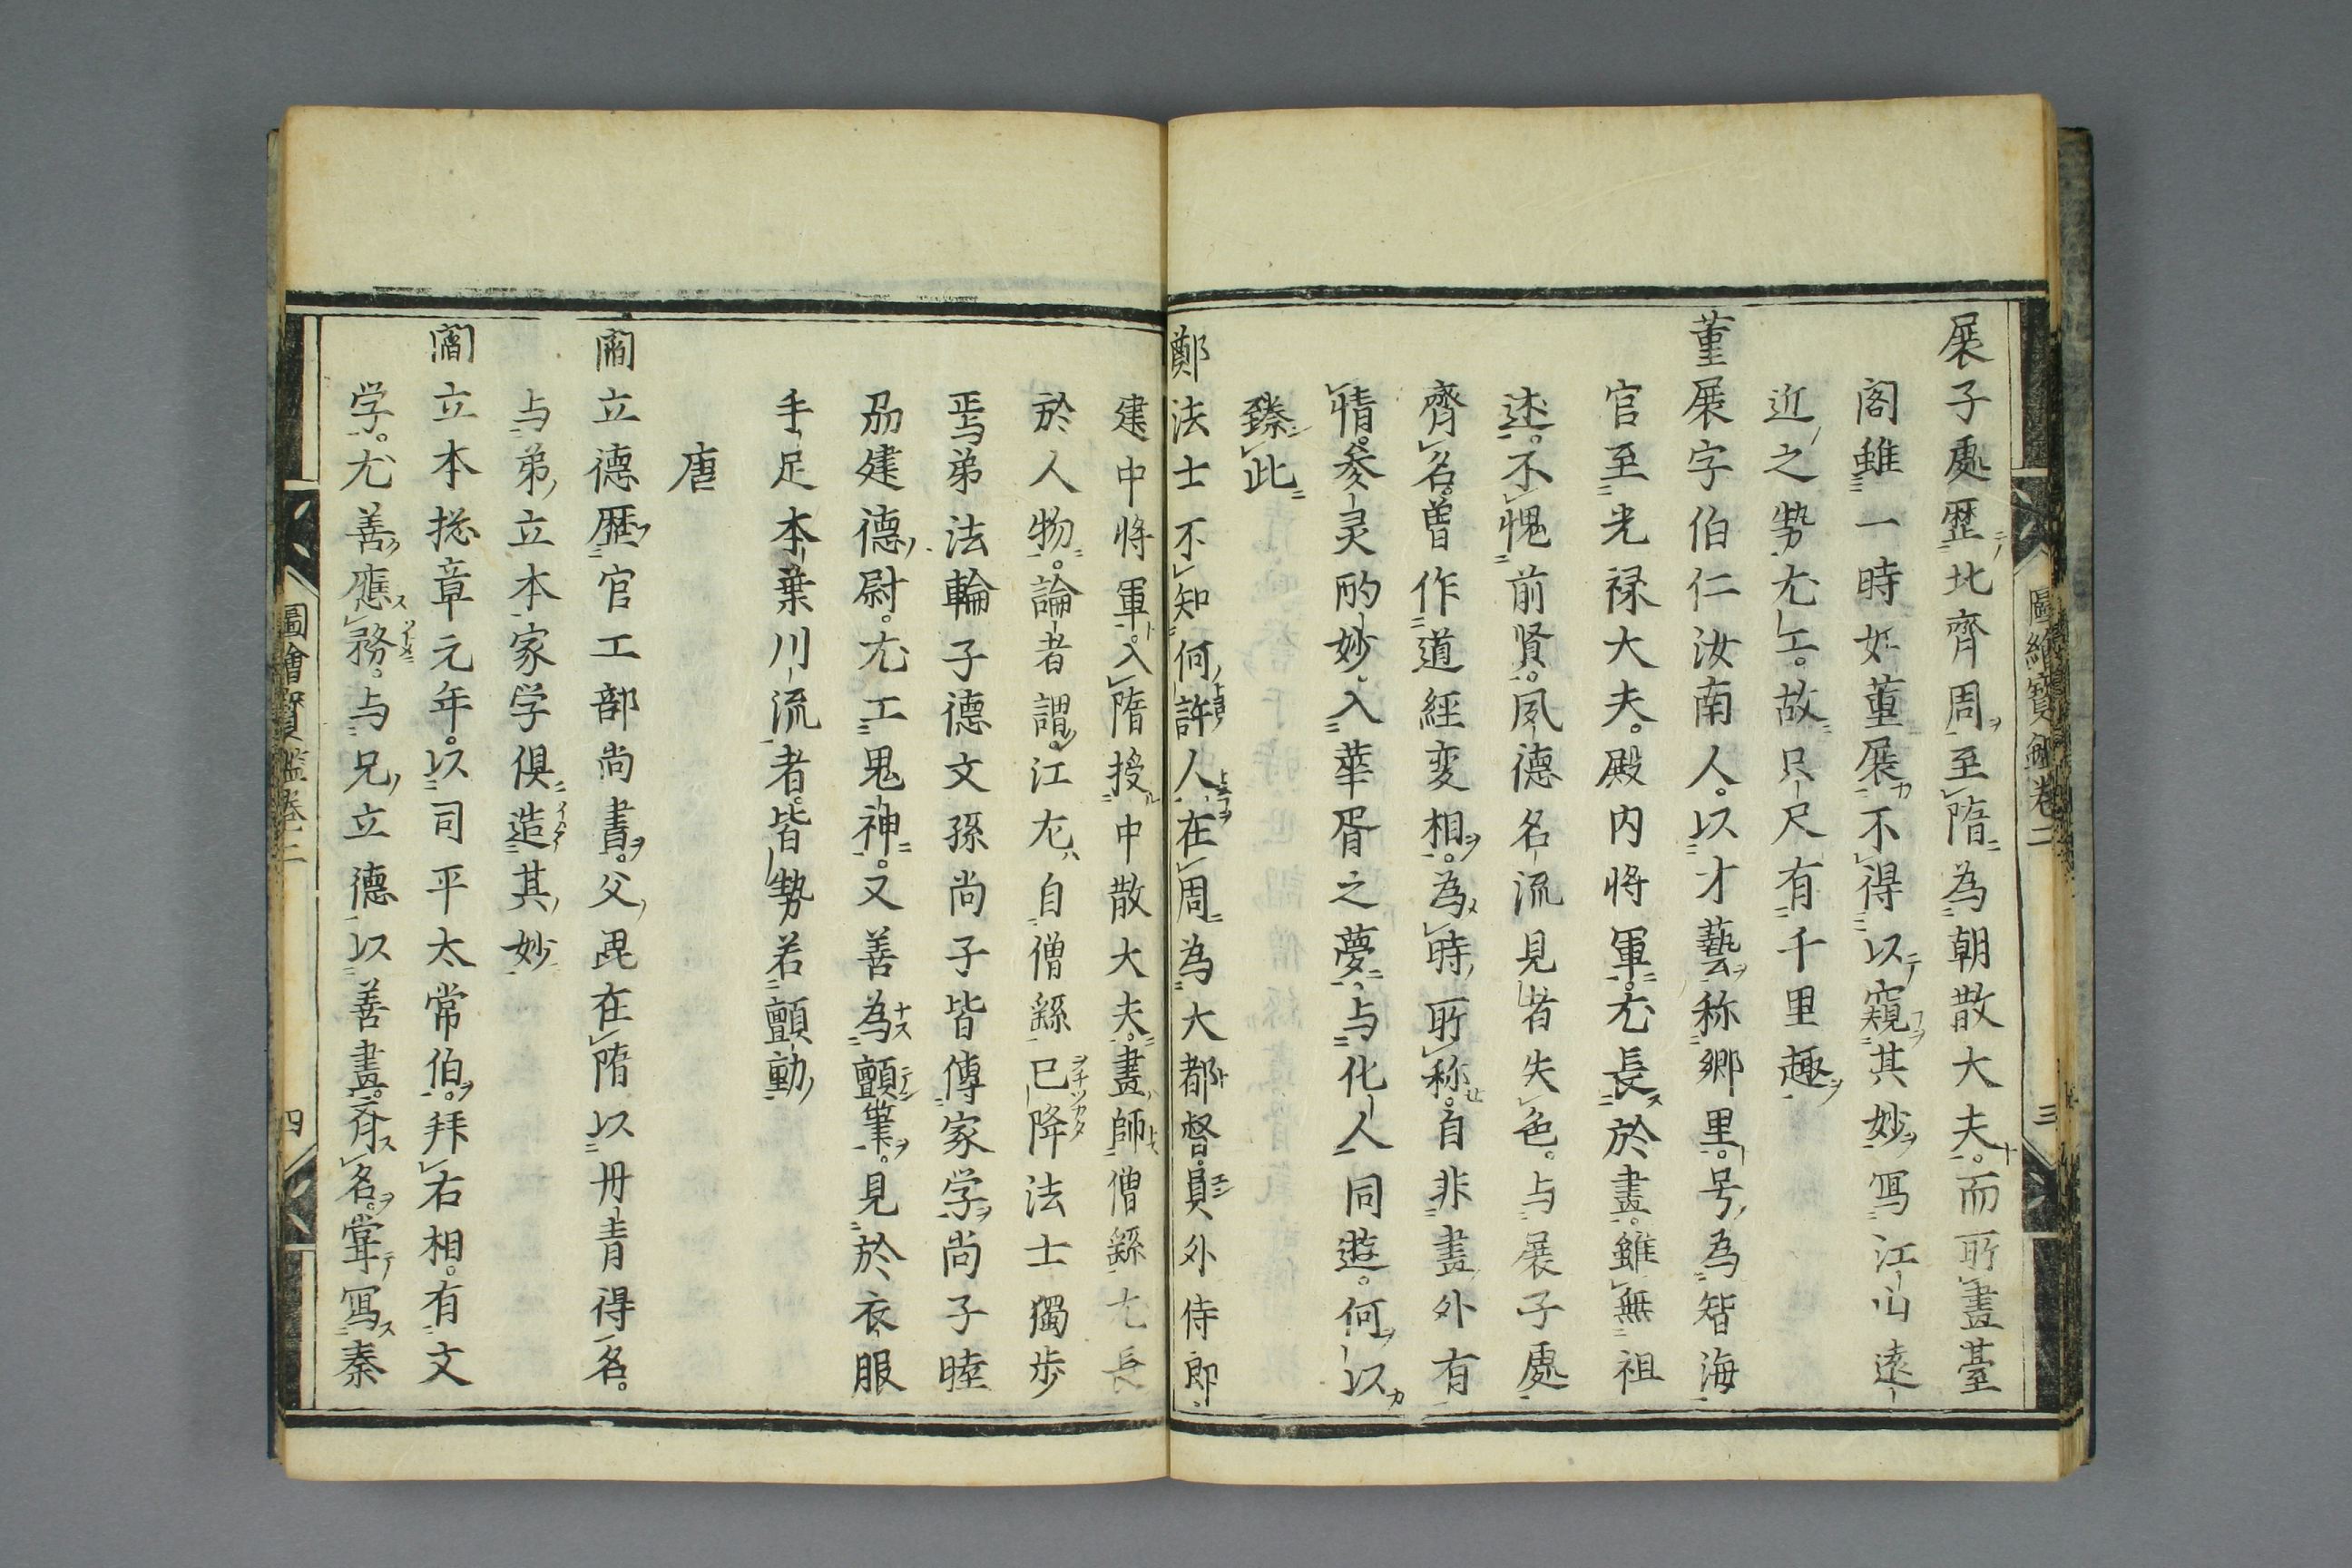 圖繪寶鑑卷二
三
展子䖏歴北齊周至隋為朝散大夫。而所畫䑓
阁雖一時如董展不得以窺其妙。冩江山逺
近之勢尤工。故只尺有千里趣
董展字伯仁汝南人。以才藝称郷里。号為智海
官至光禄大夫。殿内将軍。尤長於畫。雖無祖
述。不愧前贤。夙德名流見者失色。与展子䖏
齊名。曽作道經変相。為時所称。自非畫外有
情。参灵酌妙入華胥之夢。与化人同遊。何以
臻此
鄭法士不知何許人在周為大都督。員外侍郎
建中将軍。入隋授中散大夫。畫師僧繇尤長
於人物。論者謂。江左自僧繇已降法士獨歩
焉弟法輪子德文孫尚子皆傳家学。尚子睦
刕建德尉。尤工鬼神。又善為顫筆。見於衣服
手足木葉川流者。皆勢若顫動
唐
閻立德歴官工部尚書。父毘在隋以丹青得名。
与弟立本家学俱造其妙
閻立本捴章元年。以司平太常伯。拜右相。有文
学。尤善應務。与兄立德以善畫。齐名。甞冩秦
圖繪寳鑑卷二
四